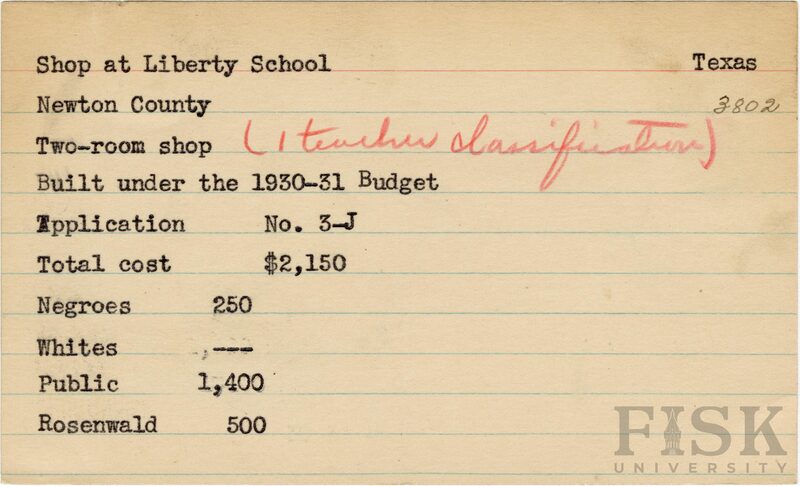 Shop at Liberty School Texas
Newton County 3802
Two-room shop (1 teacher classification)
Built under the 1930-31 Budget
Application No. 3-J
Total cost $2,150
Negroes 250
Whites ,---
Public 1,400
Rosenwald 500
FISK
UNIVERSITY